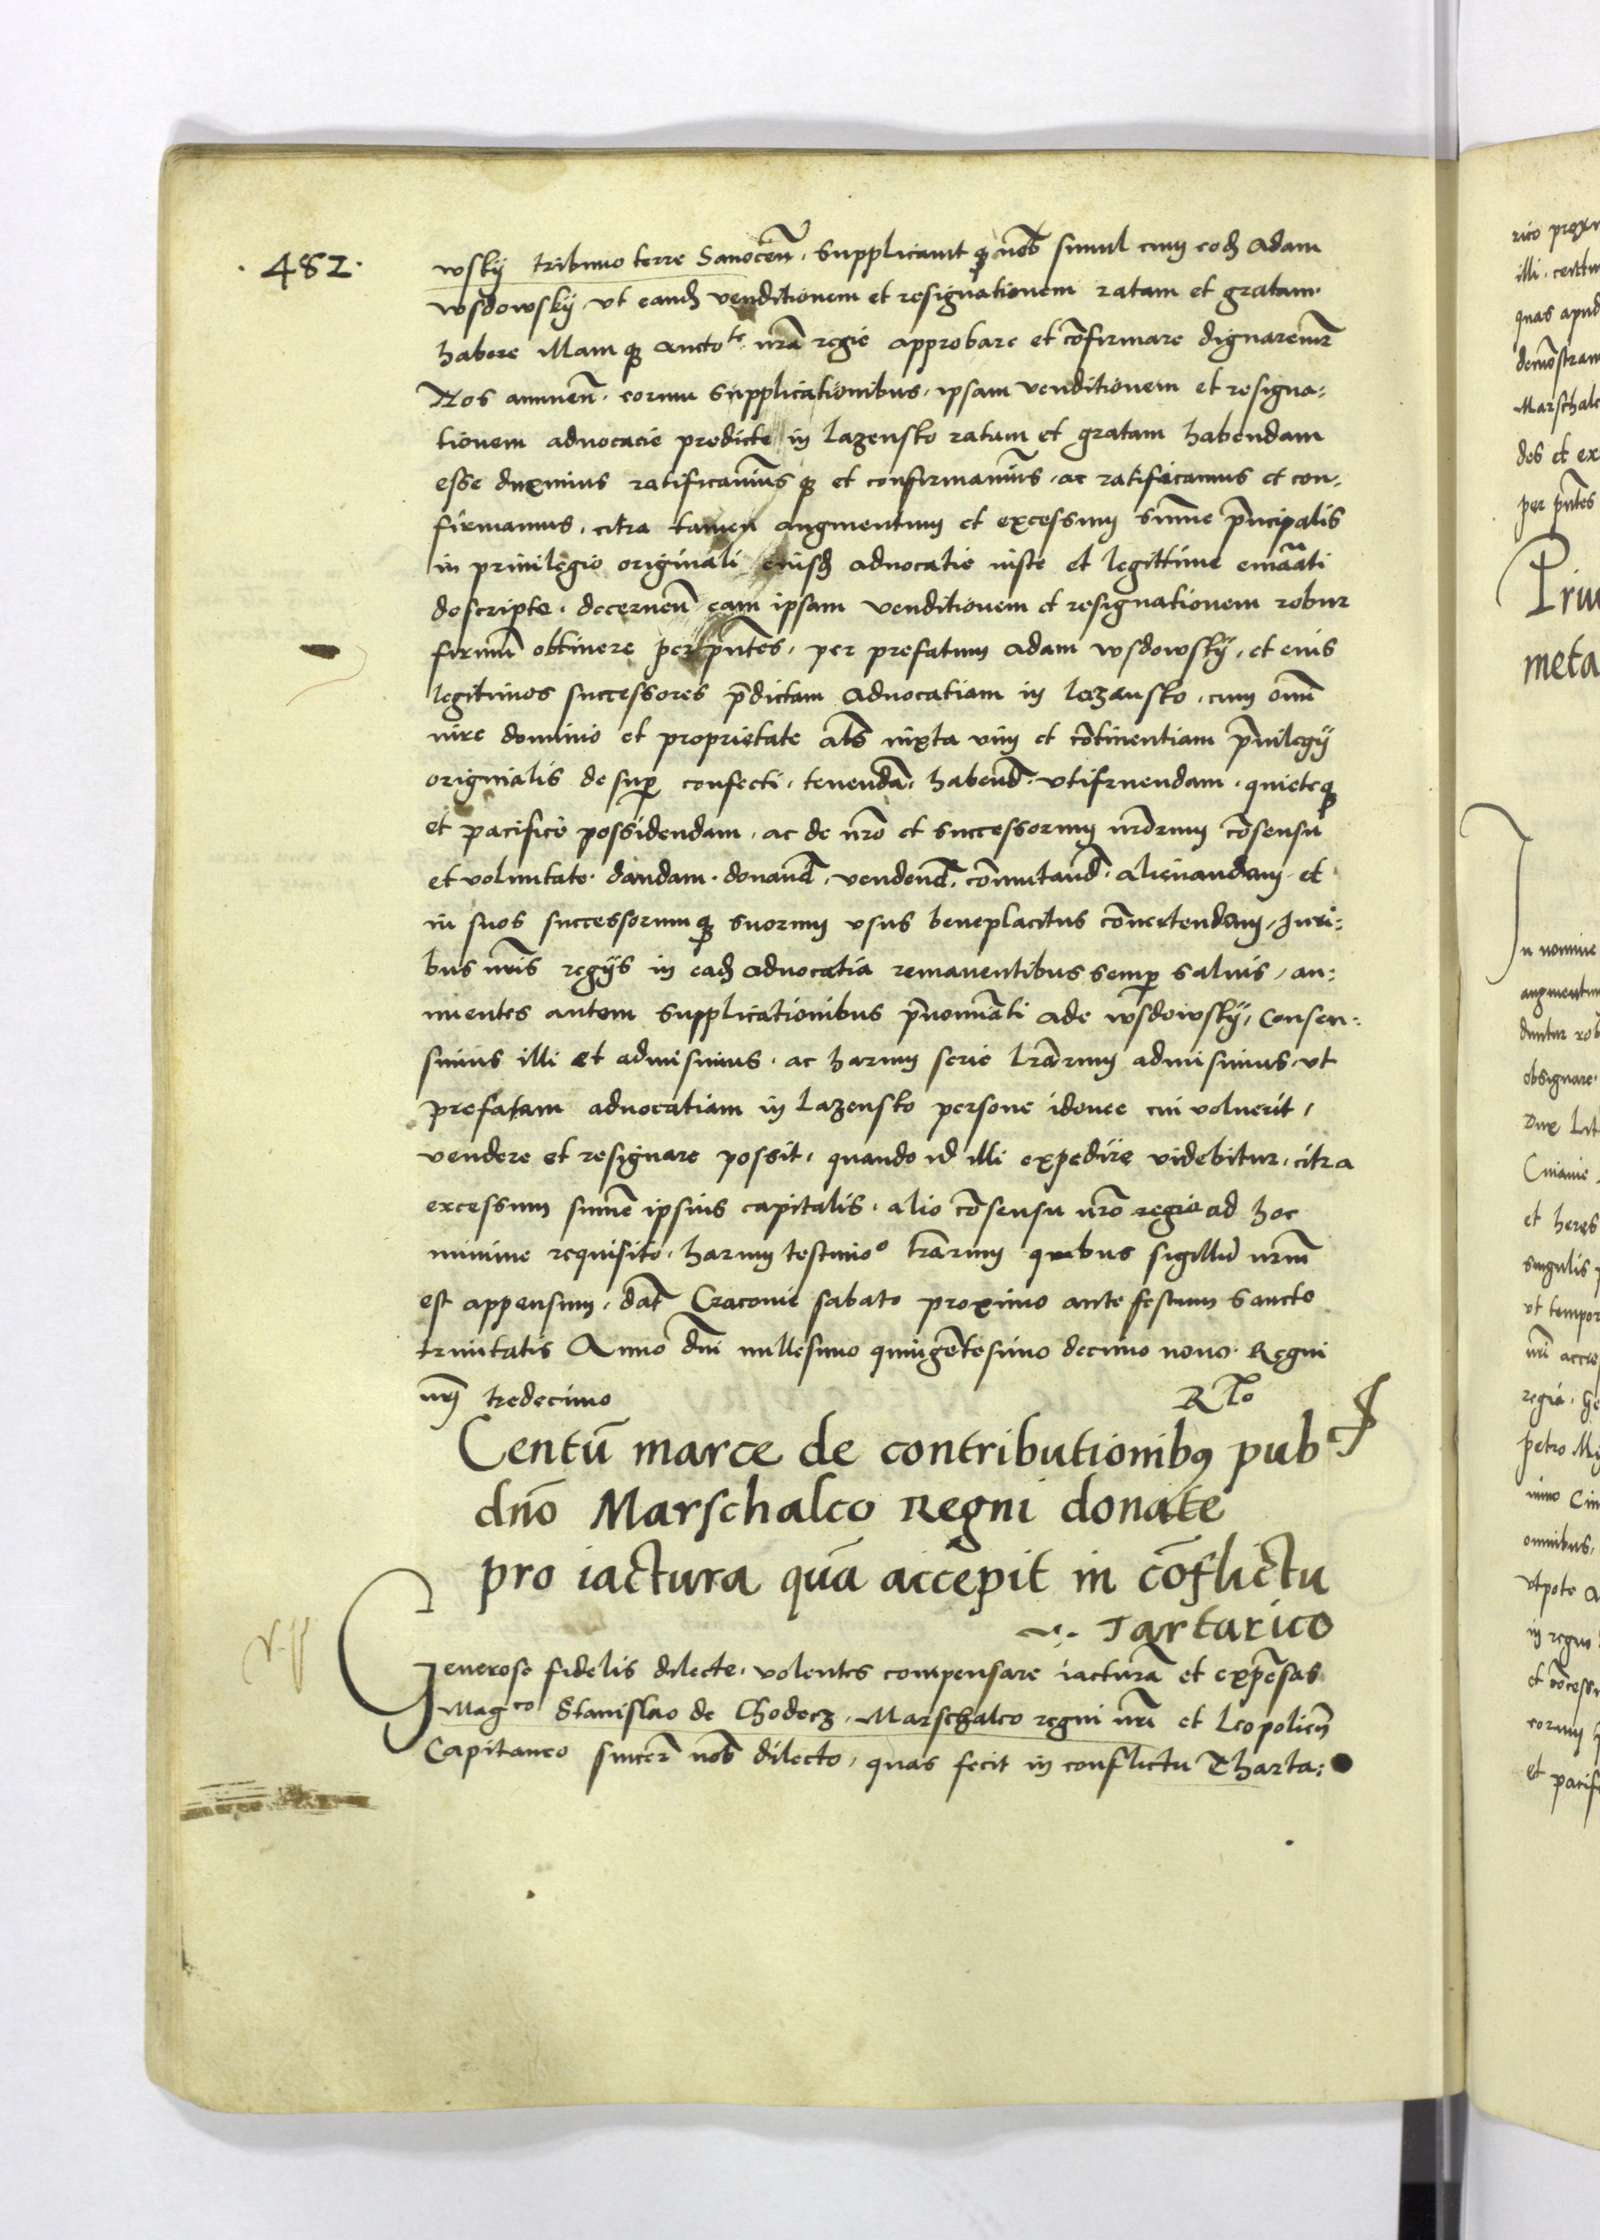 · 482 ·
wskÿ tribuno terre Sanoceñ, supplicavit q nob simul cum eod Adam
wsdowskÿ, vt eand venditionem et resignationem ratam et gratam
habere illamq auctote nrã regie approbare et cõfirmare dignaremur
Nos annueñ. eorum supplicationibus, ipsam venditionem et resigna:
tionem advocacie predicte in Lazensko ratam et gratam habendam
esse duximus ratificavimusq et confirmavimus, ac ratificamus et con:
firmamus, citra tamen augmentum et excessum summe p̃ncipalis
in privilegio originali eiusd advocatie iuste et legittime emãnati
descripte. decerneñ eam ipsam venditionem et resignationem robur
firmũ obtinere per p̃ntes, per prefatum Adam wsdowskÿ, et eius
legitimos successores p̃dictam Advocatiam in Lazensko, cum omĩ
iure dominio et proprietate als iuxta vim et cõtinentiam p̃vilegÿ
originalis desup confecti, tenendã, habend, vtifruendam, quieteq
et pacifice possidendam, ac de nrõ et successorum nrõrum cõsensu
et voluntate dandam. donand, vendend, cõmutand, alienandam et
in suos successorumq suorum vsus beneplacitus cõvertendam, Juri:
bus nris regÿs in ead Advocatia remanentibus semp salvis, an:
nuentes autem supplicationibus p̃nominati Ade wsdowskÿ, consen:
simus illi et admisimus, ac harum serie lrãrum admisimus, vt
prefatam advocatiam in Lazensko persone idonee cui voluerit,
vendere et resignare possit, quando id illi expedire videbitur, citra
excessum summe ipsius capitalis, alio cõsensu nrõ regio ad hoc
minime requisito, harum testimoo lrãrum quibus sigillũ nrũm
est appensum, dat Cracovie sabato proximo ante festum sancte
trinitatis Anno dñi millesimo quingẽtesimo decimo nono. Regni
nri tredecimo
Rlo
Centũ marce de contributionibꝰ pub
dño Marschalco Regni donate
pro iactura quã accepit in cõflictu
Tartarico
Generose fidelis dilecte, volentes compensare iacturã et expẽsas
Magco Stanislao de Chodecz, Marschalco regni nri et Leopolieñ
Capitaneo sincere nob dilecto, quas fecit in conflictu Tharta:
rico
illi
quas apud
demõstram
Marschalc
des et ex
per p̃ntes
Priu
meta
In nomine
augmentum
obsignare
Dux Lit
et heres
singulis
vt tempor
nri
regia
petro
omnibus,
vtpote
in regno
eorum
et pacif